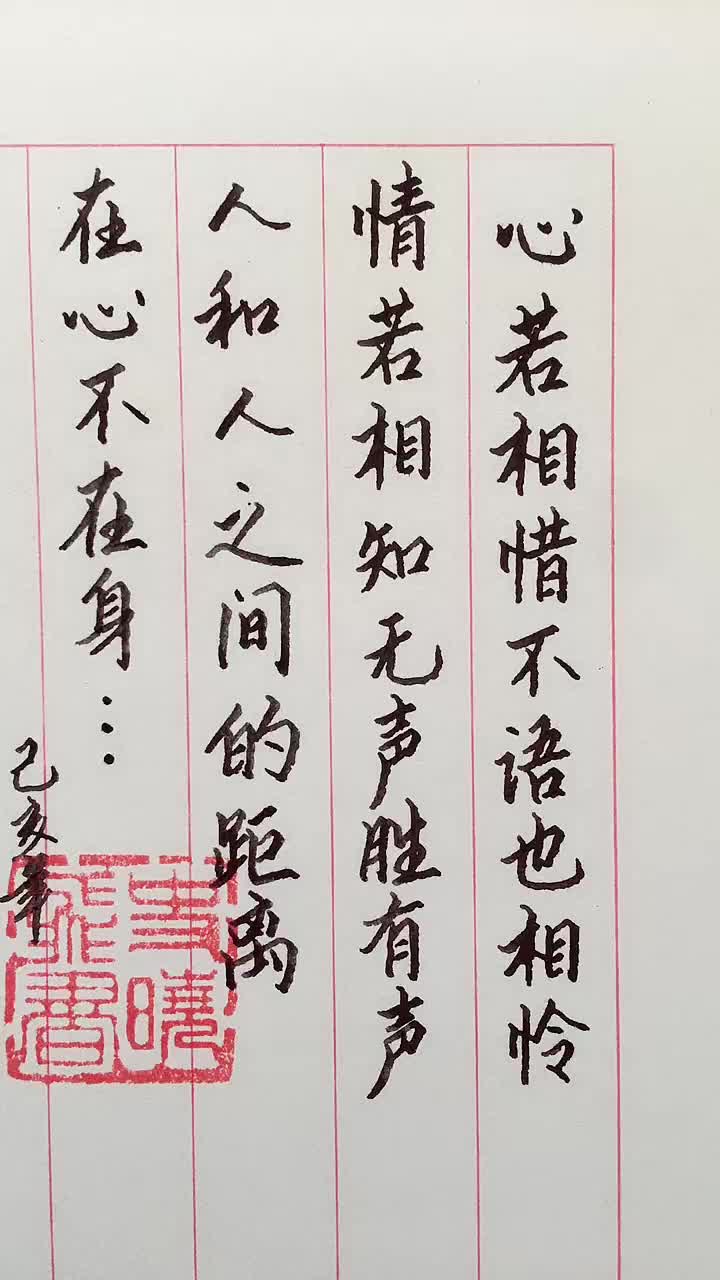 心若相惜不语也相怜
情若相知无声胜有声
人和人之间的距离
在心不在身…
己亥